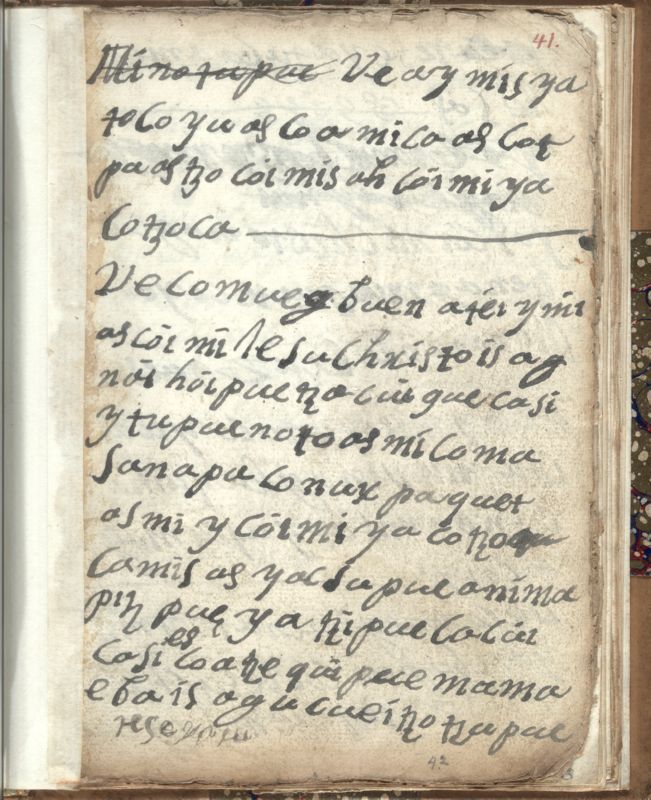 41.
Minotupue Ve ay mis ya
to co yu as co a mi ca as cot
pa as tzo cöi mis ah cöi mi ya
cotzoca
Ve comueg buen ateı y mi
as cöi mi Iesu Christo is ag
nöi höi pue tza cüi que casi
y tu pue noto as mi coma
Sanapa co nax pa quet
as mi y cöi mi ya co tzo
camis as yac su pue anima
pitz pue y a tzi pue co cüi
casi es co a tze qüi pue mama
e ba is agu cuei tzo tzu pue
42